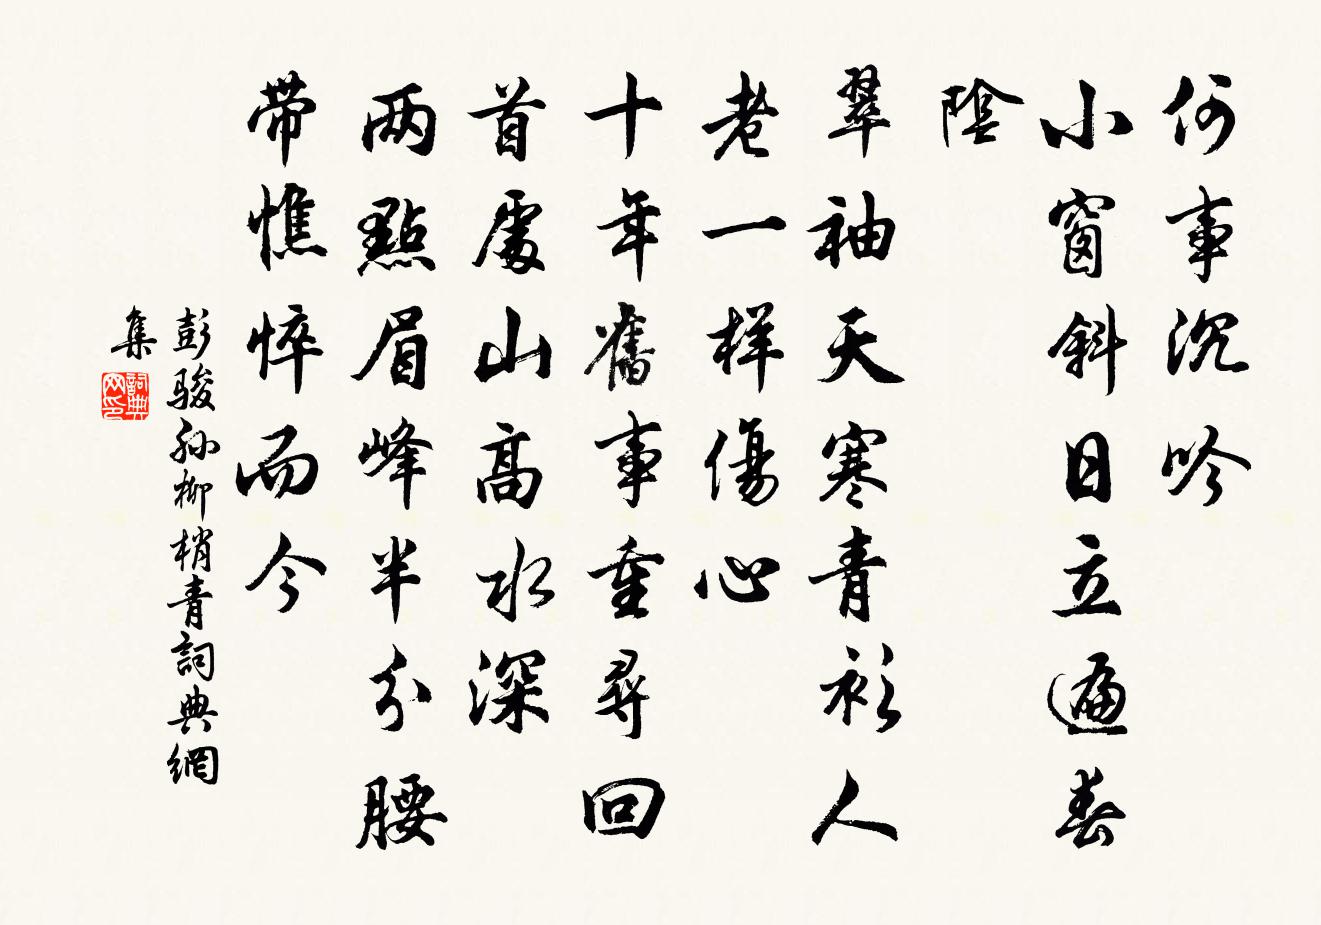 何事沉吟
小窗斜日立遍春
陰
翠袖天寒青衫人
老一样傷心
十年舊事重尋回
首處山高水深
两點眉峰半分腰
带憔悴而今
彭骏孙柳梢青詞典網
集
詞典网印